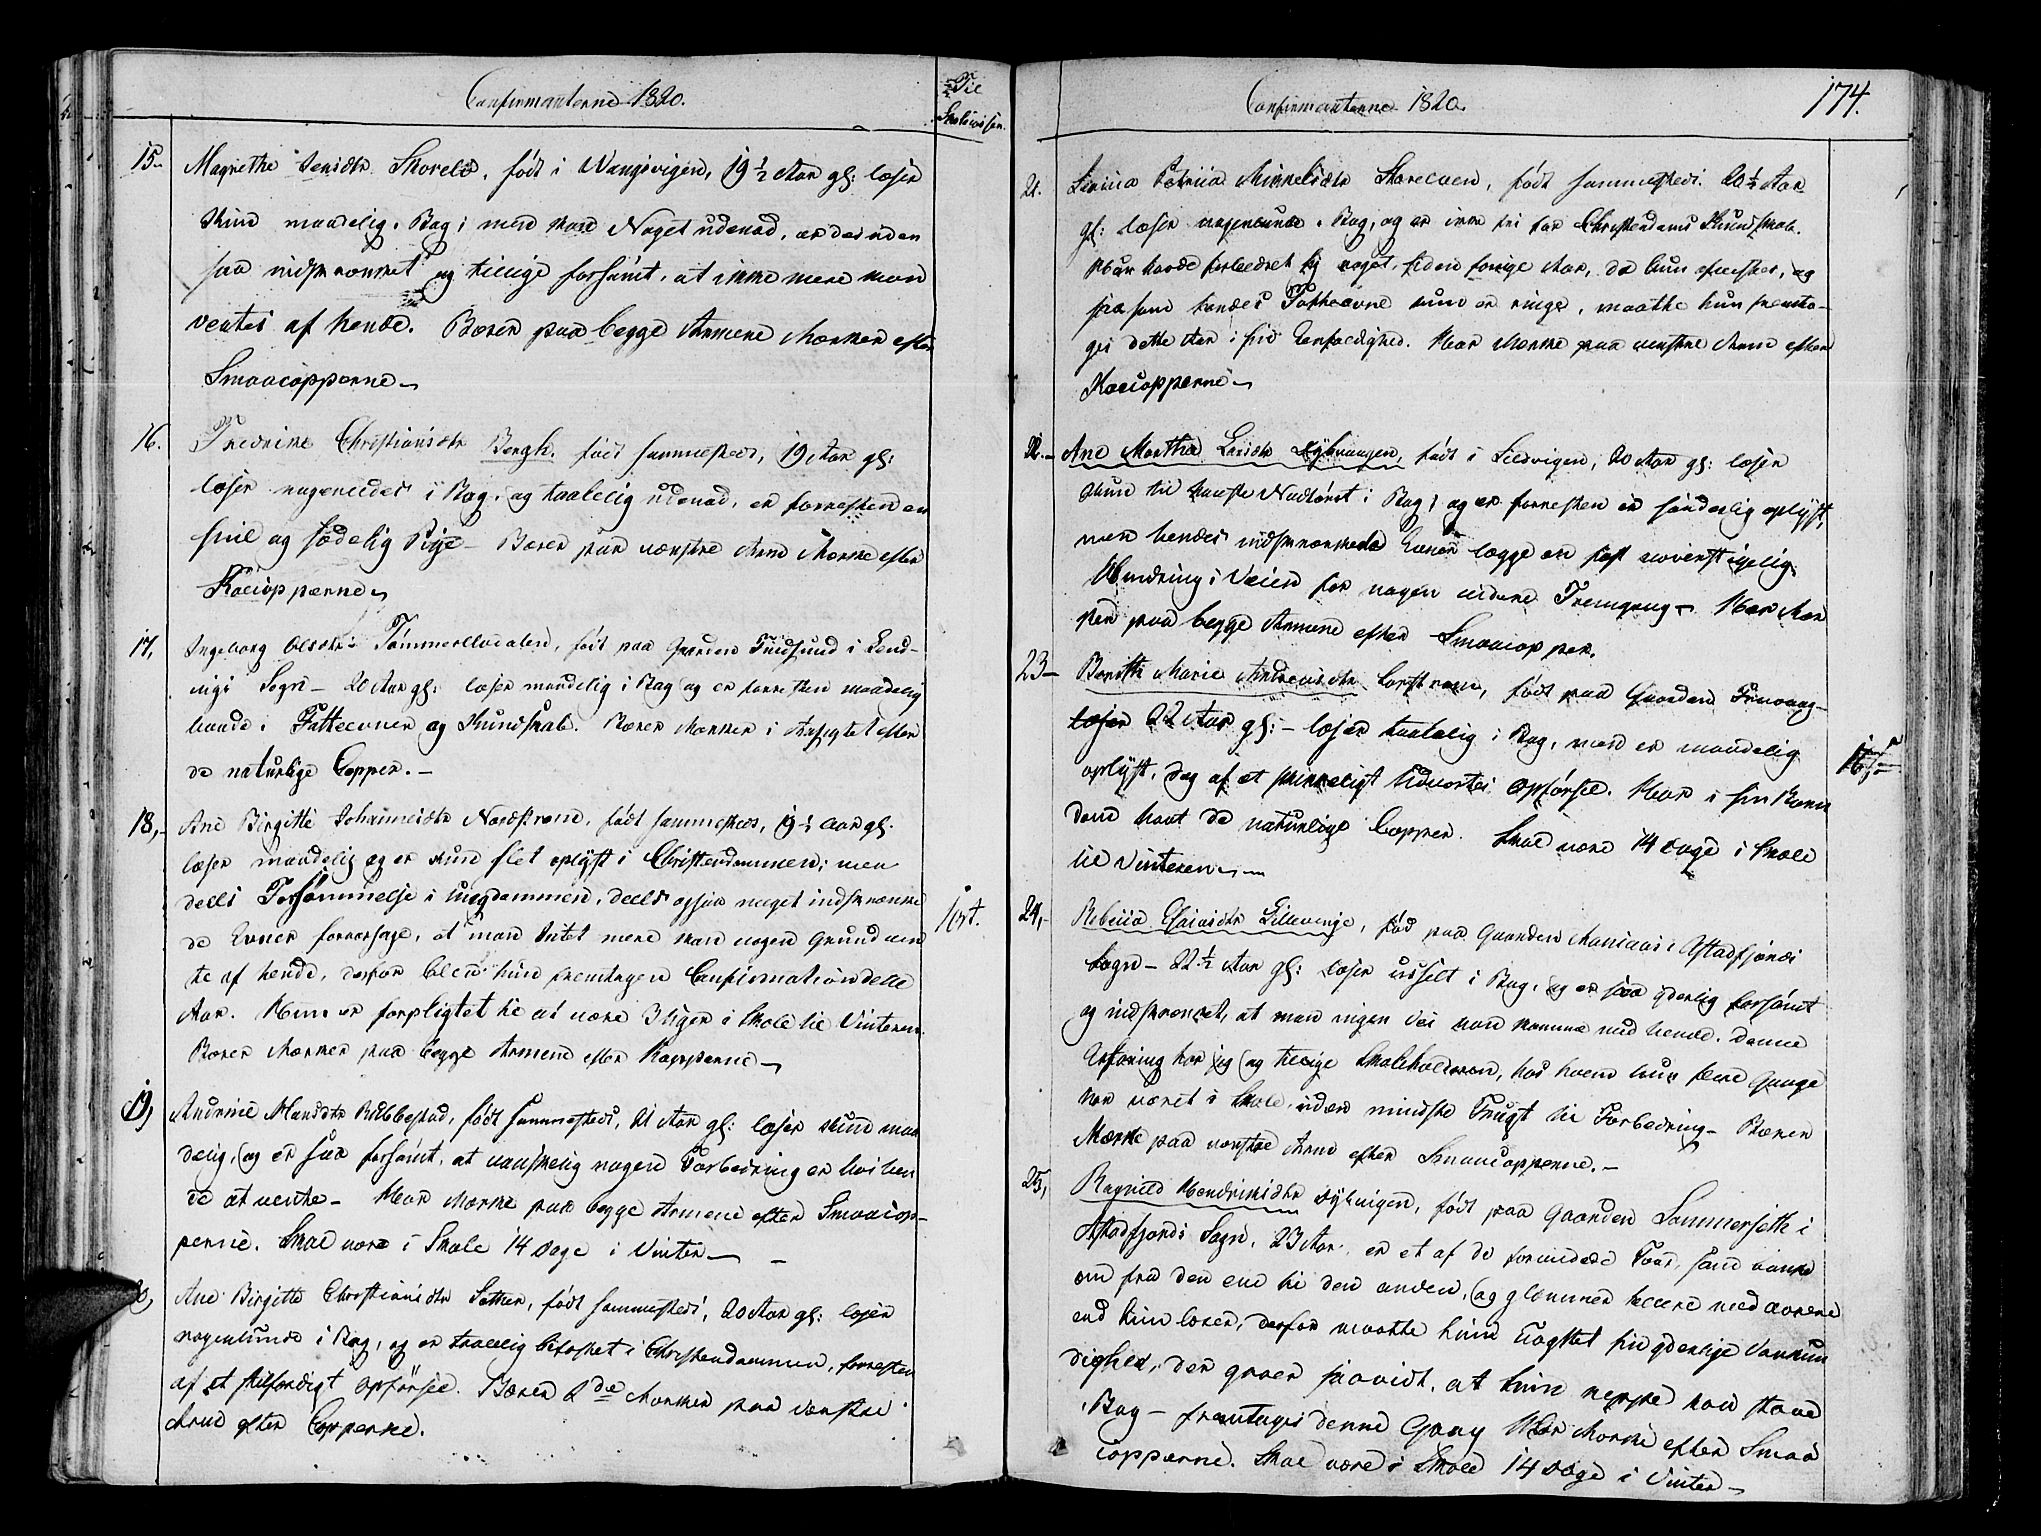 Confirmanterne 1820.
Til
Skolevæsen.
15. Magrethe Jensdtr Skorelv, født i Wangsvigen, 19½ Aar gl: læser
kun maadelig i Bog; men kan Noget udenad, er desuden
saa indskrænket og tillige forsømt, at ikke mere kan
ventes af hende. Bærer paa begge Armene Mærker efter
Smaacopperne
16. Fredrike Christiansdtr Bergh, født sammesteds, 19 Aar gl:
læser nogenledes i Bog, og taalelig udenad, er forresten en
stil og sædelig Pige – Bærer paa venstre Arm Mærke efter
Kocopperne
17. Ingeborg Olsdtr Tømmerelvdalen, født paa Gaarden Findsund i Lend-
vigs Sogn – 20 Aar gl: læser maadelig i Bog og er forresten maadelig
baade i Fatteevner og Kundskab. Bærer Mærker i Ansigtet efter
de naturlige Copper. –
18. Ane Birgitte Johannesdtr Nordstrøm, født sammesteds, 19½ Aar gl.
læser maadelig og er kun slet oplyst i Christendommen; men
deels Forsømmelse i Ungdommen, deels ogsaa meget indskrænke
de Evner foraarsage, at man Intet mere kan nogen Grund ven
te af hende, derfor blev hun fremtagen Confirmation dette
Aar. Hun er forpligtet til at være 3 Uger i Skole til Vinteren.
Bærer Mærker paa begge Armene efter Kopperne
1 ort.
19, Andrine Mandsdtr Rubbestad, født sammesteds, 21 Aar gl: læser kun maa
delig, og er saa forsømt, at vanskelig nogen Forbedring er hos hen
de at vente – Har Mærke paa begge Armene efter Smaacop-
perne. Skal være i Skole 14 Dage i Vinter –
20, Ane Birgitte Christiansdtr Sæther, født sammesteds, 20 Aar gl: læser
nogenlunde i Bog, og er taalelig bekostet i Christendommen, forresten
af et skikfærdigt Opførsel. Bærer 2de Mærker paa venstre
Arm efter Copperne.
Confirmanterne 1820.
174.
21. Mikkelsdtr Skarelven, født sammesteds. 20½ Aar
gl: læser nogenlunde i Bog, og er ikke fri for Christendoms Kundskab.
Hun havde forbedret sig noget, siden forrige Aar, da hun afvistes, og
saasom hendes Fatteevne kun er ringe, maatte hun fremta-
ges dette Aar i sin Eenfoldighed. Har Mærke paa venstre Arm efter
Kocopperne
22. – Ane Marthe Larsdtr Lysvaagen, født i Sildvigen, 20 Aar gl: læser
kun til Nødtørst i Bog, og er forresten ei sønderlig oplyst,
men hendes indskrænkede Evner lægge en fast uoverstigelig
Hindring i Veien for nogen videre Fremgang – Har Mær
ker paa begge Armene efter Smaacopper.
23 – Berith Marie Andreasdtr Corstrøm, født paa Gaarden
læser 22 Aar gl: – læser taalelig i Bog, men er maadelig
oplyst, dog af et skikkeligt Udvortes Opførsel. Har i sin Barn
dom havt de naturlige Copper. Skal være 14 Dage i Skole
til Vinteren
16
24, – Rebecca Esaiasdtr Gillevenge, fød paa Gaarden i Astafjords
Sogn – 22½ Aar gl: læser usselt i Bog, og er saa yderlig forsømt
og indskrænket, at man ingen Vei kan komme med hende. Denne
Erfaring har jeg og tillige Skoleholderen, hos hvem hun flere Gange
har været i Skole, uden mindste Frugt til Forbedring – Bærer
Mærke paa venstre Arm efter Smaacopperne. –
25, Ragnild Hendriksdtr Dyhvigen, født paa Gaarden Sommersette i
Astafjords Sogn, 23 Aar, er et af de forvildede Faar, som vanke
om fra den ene til den anden, og glemmer heller med Aarene
end hun lærer, derfor maatte hun Uagtet sin yderlige Vankun
dighed, der gaaer saavidt, at hun neppe kan stave
i Bog – fremtages denne Gang Har Mærke efter Smaa
copperne. Skal være i Skole 14 Dage i Vinter –